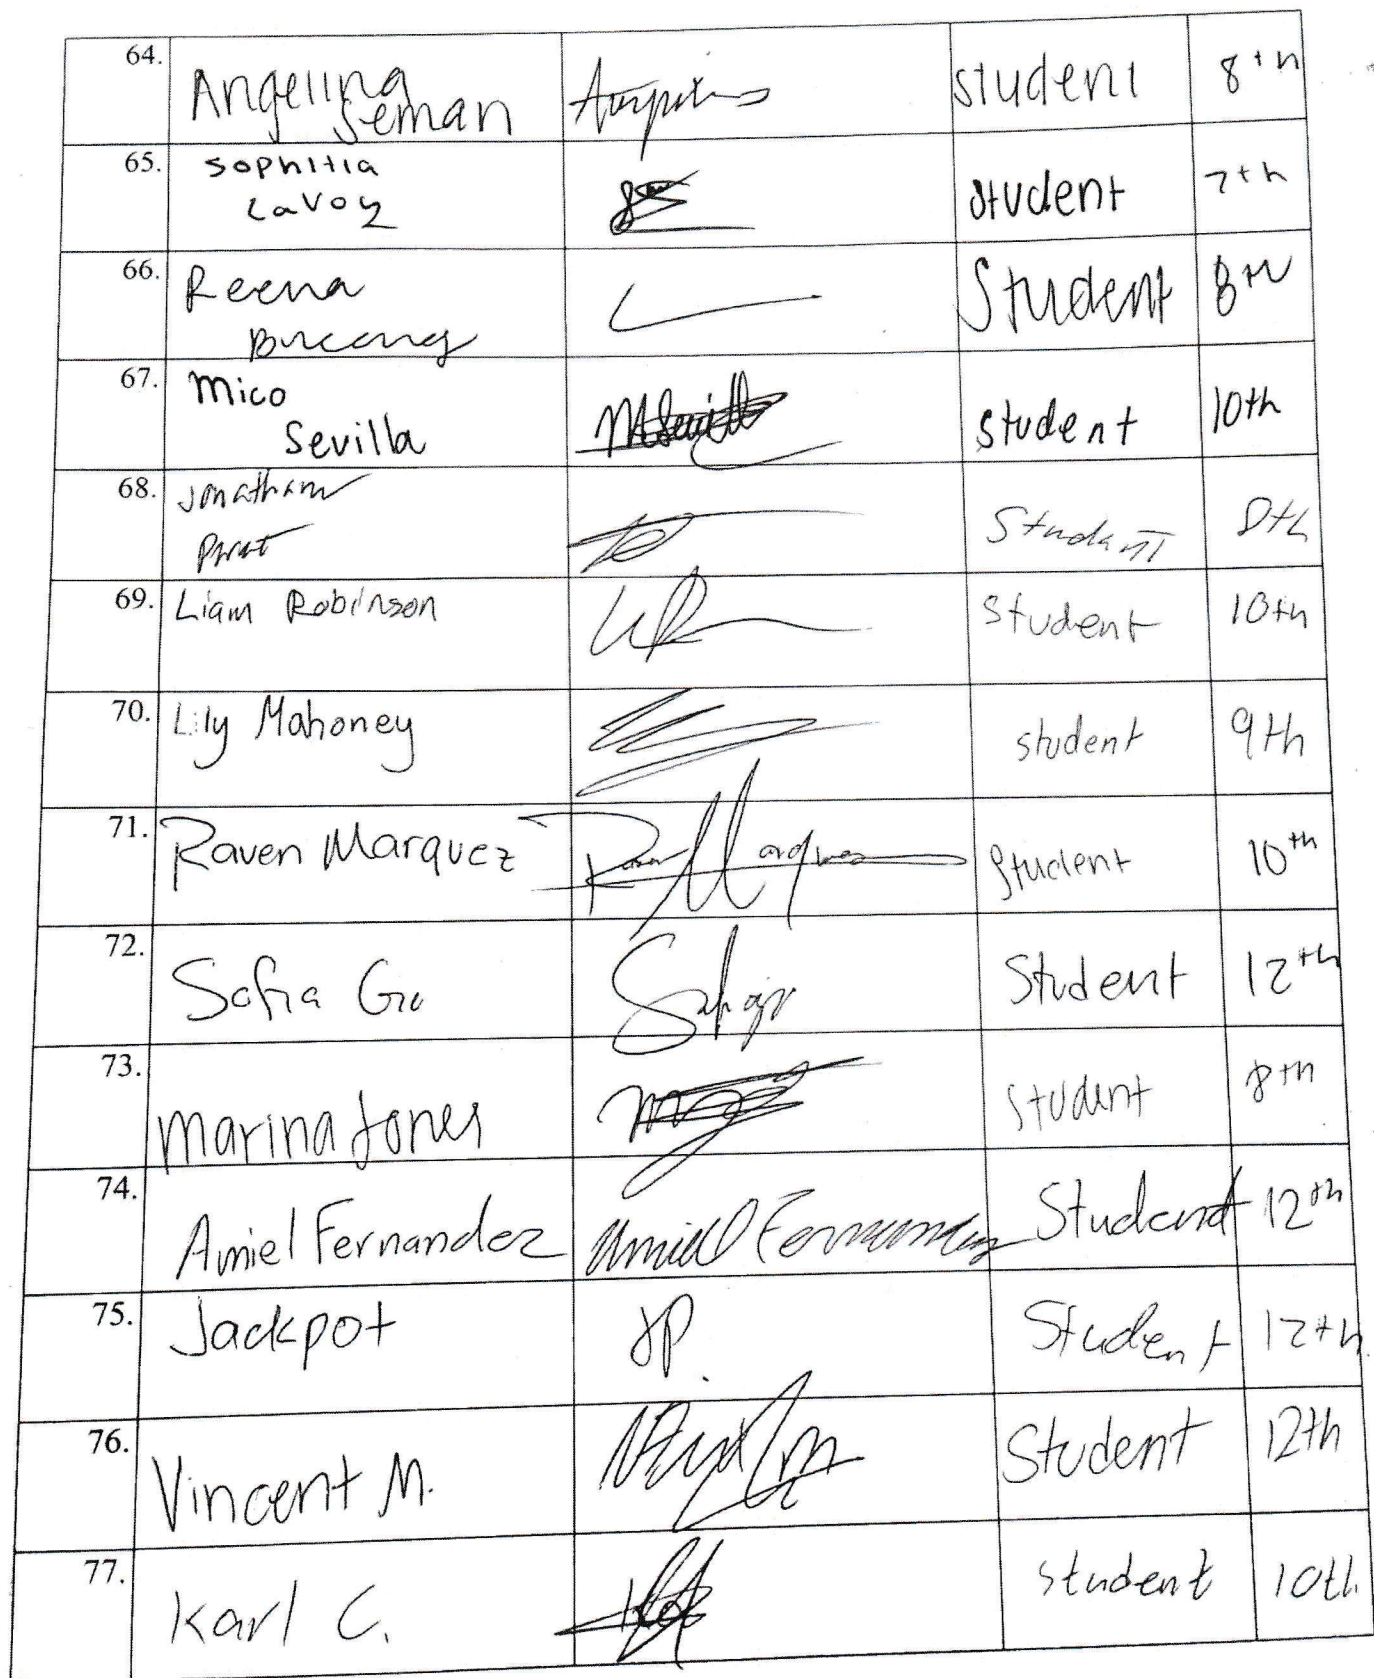 64. Angelina Seman student 8th
65. Sophitia LaVoy student 7th
66. Reena Student 8th
67. Mico Sevilla MSevilla student 10th
68. Jonathan Student 8th
69. Liam Robinson LR student 10th
70. Lily Mahoney student 9th
71. Raven Marquez Raven Marquez student 10th
72. Sofia Gu Student 12th
73. Marina Jones student 8th
74. Amiel Fernandez Amiel Fernandez Student 12th
75. Jackpot JP. Student 12th
76. Vincent M. Student 12th
77. Karl C. student 10th